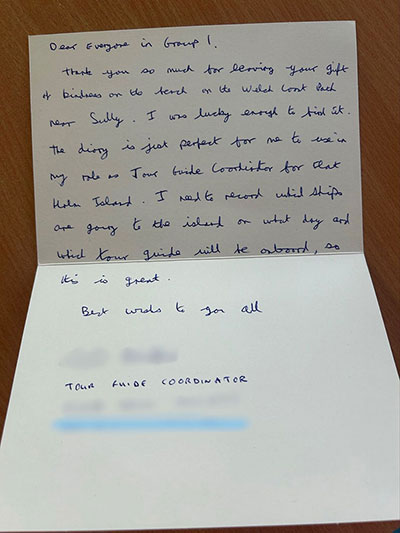 Dear Everyone in Group 1,
Thank you so much for leaving your gift
of kindness on the bench on the Welsh Coast Path
near Sully. I was lucky enough to find it.
The diary is just perfect for me to use in
my role as Tour Guide Coordinator for Flat
Holm Island. I need to record which ships
are going to the island on what day and
which tour guide will be onboard, so
this is great.
Best wishes to you all
TOUR GUIDE COORDINATOR